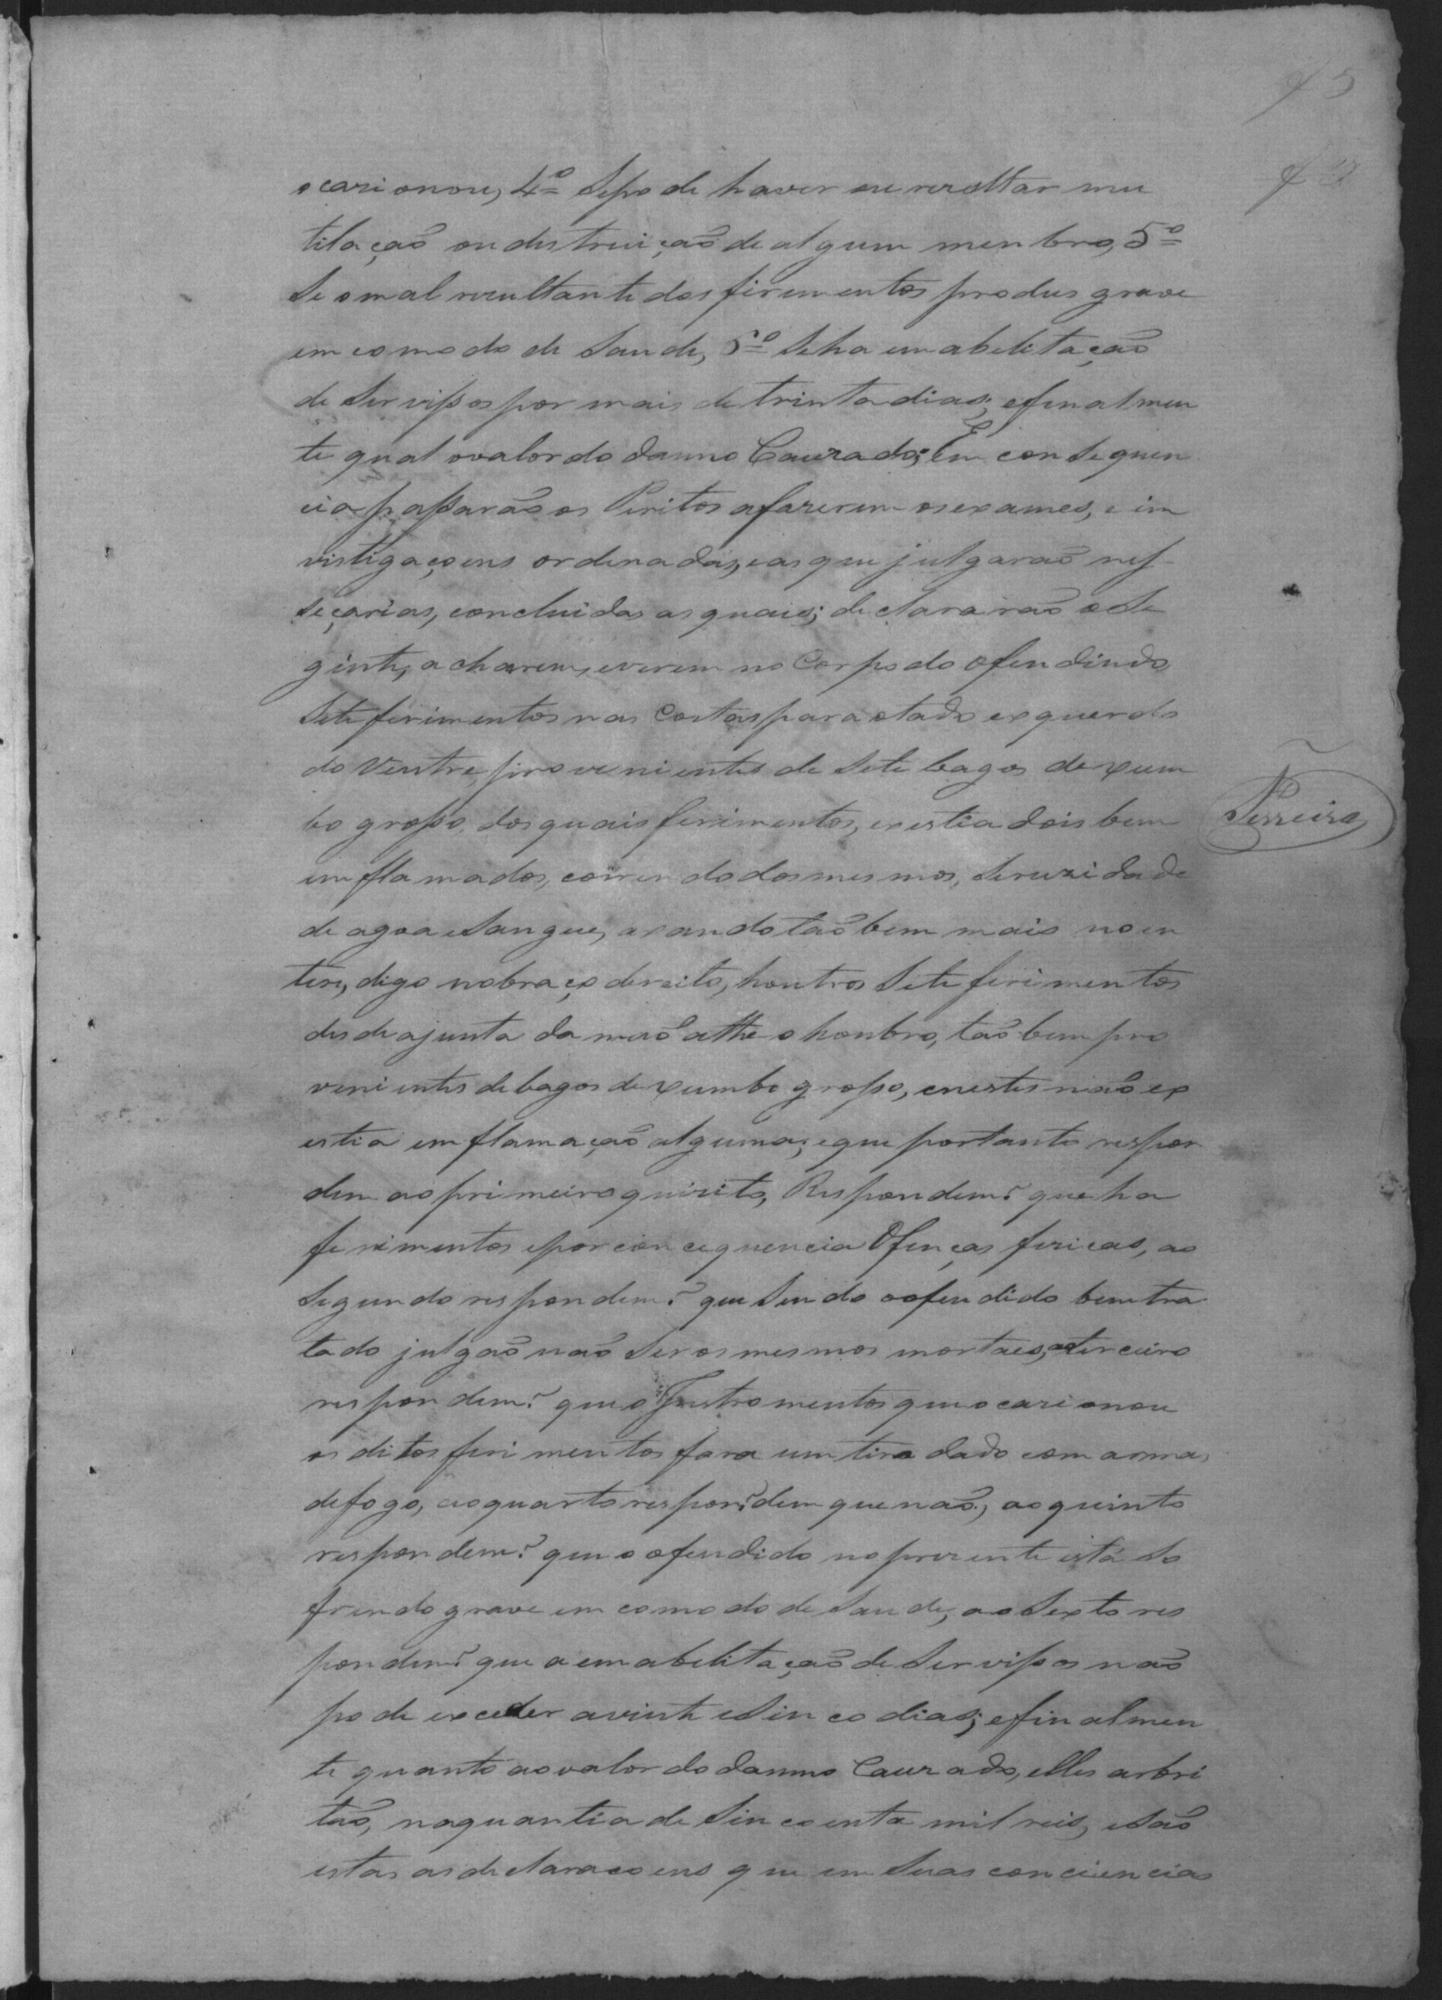 f 5
ocazionou, 4º Se pode haver ou rezoltar mu
tilação ou distruição de algum membro, 5º
Se o mal rezultante dos firimentos produs grave
emcomodo de Saude, 6º Se ha emabelitação
de Servissos por mais de trinta dias; efinalmen
te qual ovalor do danno Cauzado; Em consequen
cia passarão os Piritos afazerem os exames, e im
vistigaçoens ordenadas, eas que julgarão nes-
seçarias, concluidas as quais; declararão o Se
ginte, acharem, everem no Corpo do ofendindo
Sete ferimentos nas Costas para olado exquerdo
do Ventre, provenientes de Sete bagos de xum
bo grosso, dos quais ferimentos, exestia dois bem
emflamados, correndo dos mesmos, Seruzidade
de agoa e Sangue, axando tão bem mais no en
tere, digo nobraço dereito, houtros Sete ferimentos
desde ajunta da mão athe o hombro, tão bem pro
venientes de bagos de xumbo grosso, enestes não ex
estia emflamação alguma; eque portanto respon
dem ao primeiro quizito, Respondem? que ha
ferimentos epor concequencia Ofenças fizicas, ao
Segundo respondem? que Sendo oofendido bem tra
tado julgão não Ser os mesmos mortaes, ao terceiro
respondem? que o Instromentos que ocazionou
os ditos ferimentos fora um tiro dado com arma
de fogo, ao quarto respondem que não, ao quinto
respondem? que o ofendido no prezente está So
frendo grave emcomodo de Saude, ao Sexto res
pondem? que a emabelitação de Servissos não
pode exceder avinte e Sinco dias; efinalmen
te quanto ao valor do danno Cauzado, elles arbri
tão, naquantia de Sincoenta mil reis, e São
estas as declaraçoens que em Suas conciencias
Ferreira